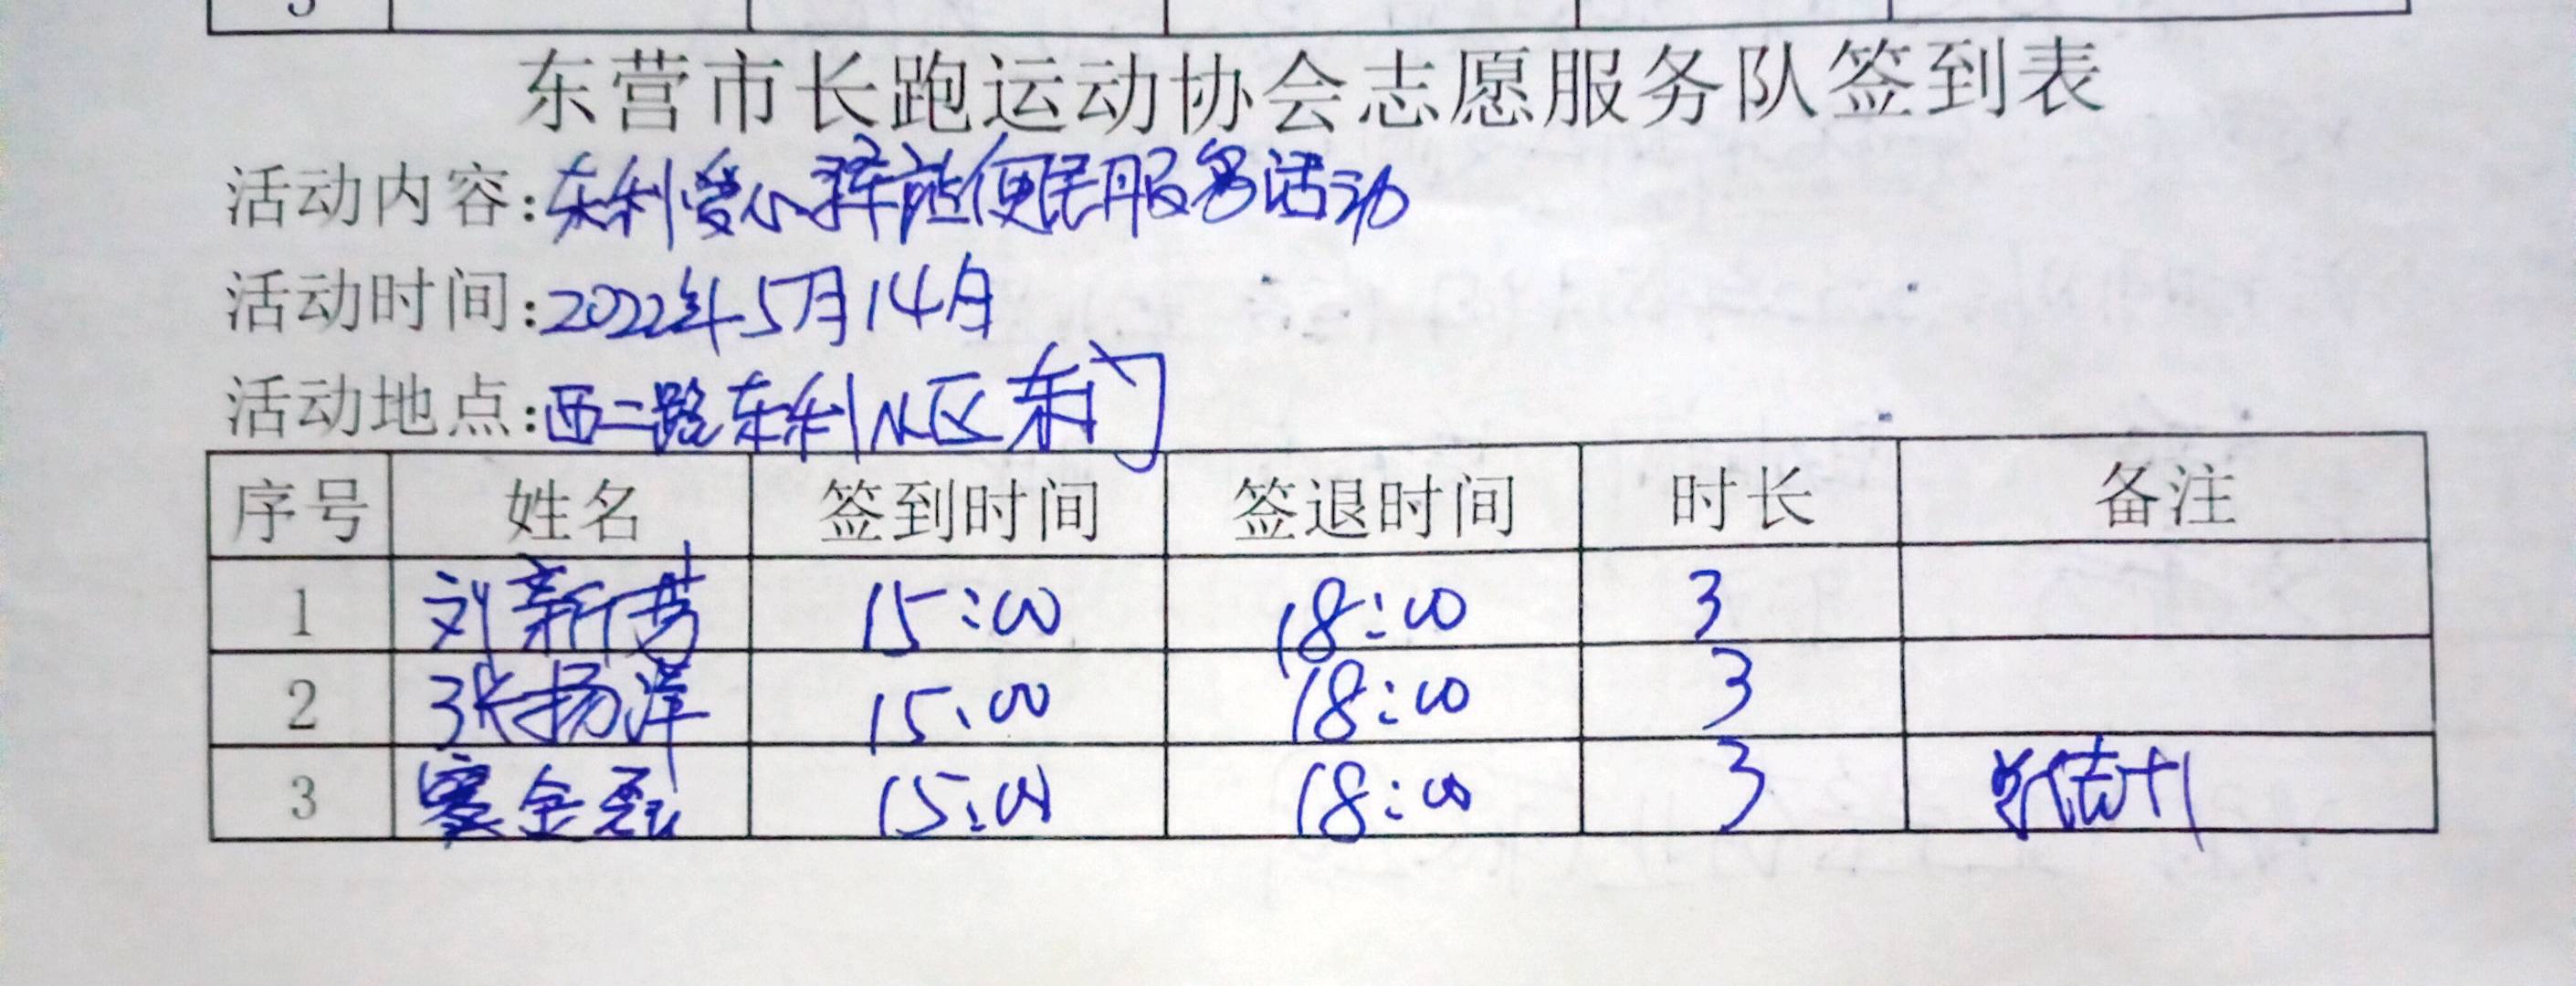 3
东营市长跑运动协会志愿服务队签到表
活动内容:东利爱心驿站便民服务活动
活动时间:2022年5月14日
活动地点:西二路东利小区东门
序号 姓名 签到时间 签退时间 时长 备注
1 刘新芳 15:00 18:00 3
2 张扬洋 15:00 18:00 3
3 金 15:00 18:00 3